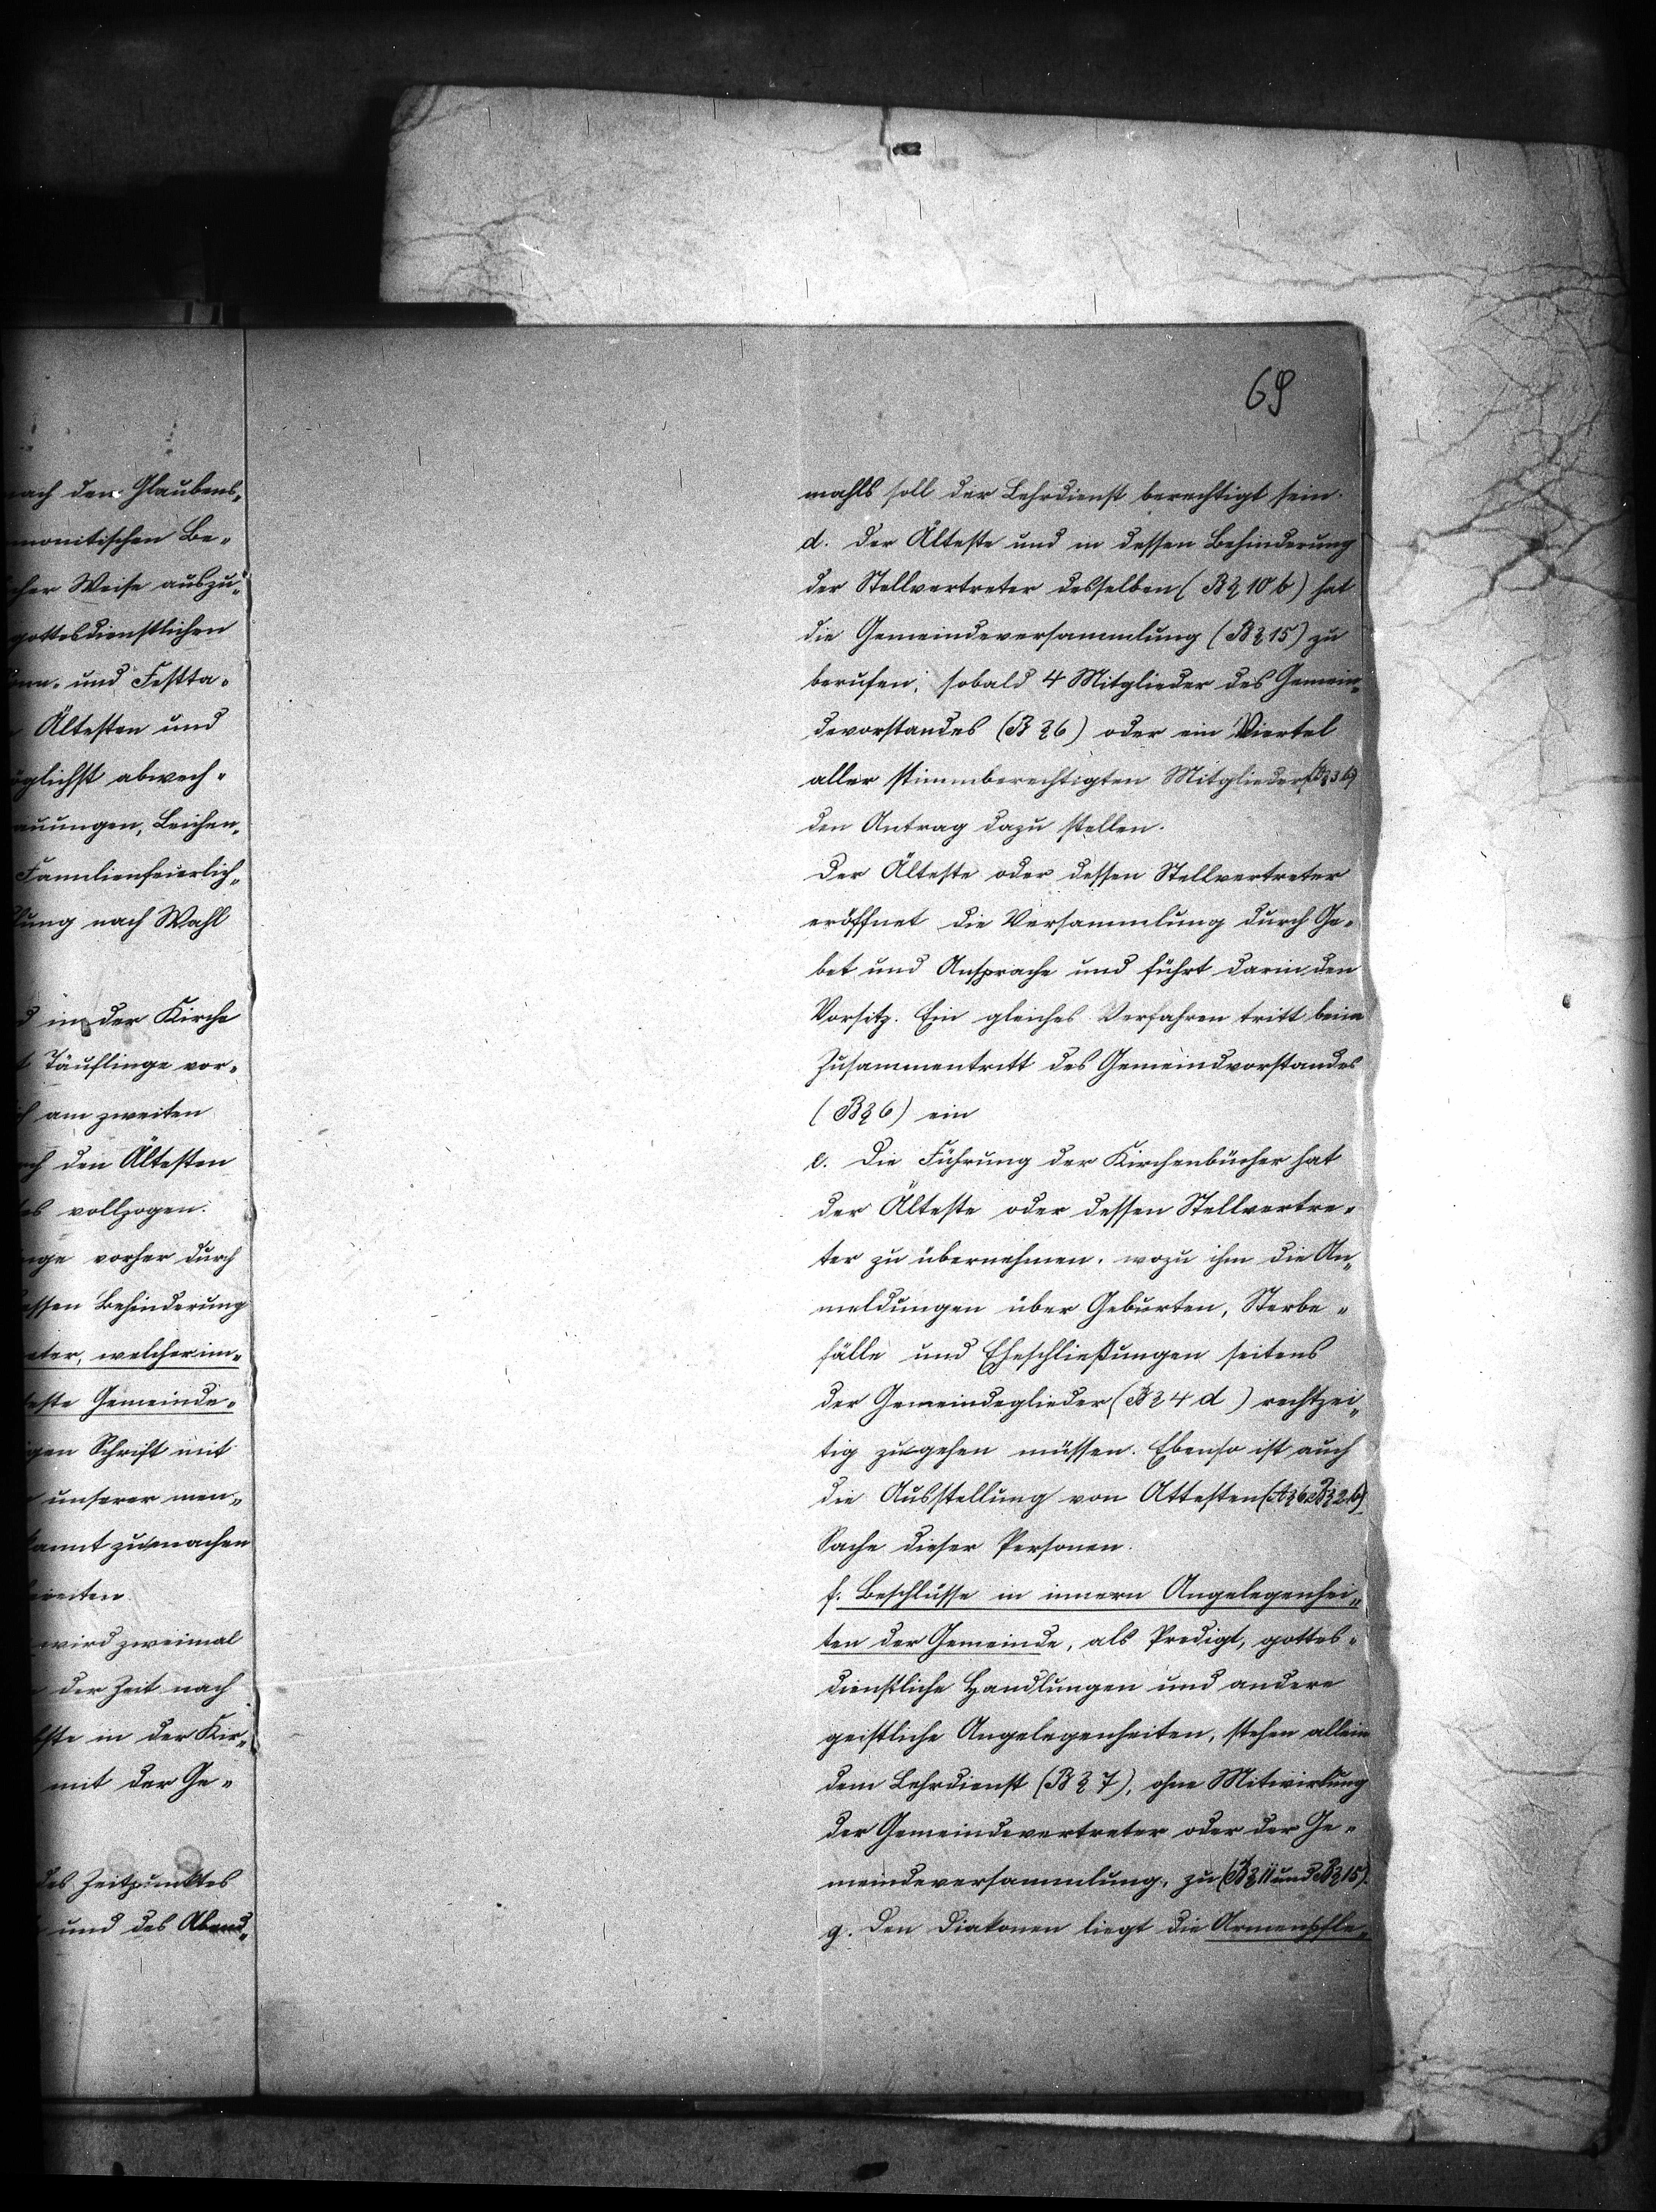 nach dem Glaubens„
monitischen Be„
cher Weise auszu„
gottesdienstlichen
und Festta„
Ältesten und
öglichst abwech„
auungen, Leichen„
Familienfeierlich„
lung nach Wahl
in der Kirche
Täuflinge vor„
am zweiten
ch den Ältesten
es vollzogen.
inge vorher durch
essen Behinderung
eter, welcher im„
este Gemeinde„
igen Schrift mit
unserer men„
kannt zu machen
breiten.
wird zweimal
der Zeit nach
lste in der Kir„
mit der Ge„
des Zeitpunktes
und des Abend„
69
mahls soll der Lehrdienst berechtigt sein.
d. Der Älteste und in dessen Behinderung
der Stellvertreter desselben (B § 10 b) hat
die Gemeindeversammlung (B § 15) zu
berufen, sobald 4 Mitglieder des Gemein„
devorstandes (B § 6) oder ein Viertel
aller stimmberechtigten Mitglieder (B § 3 b)
den Antrag dazu stellen.
Der Älteste oder dessen Stellvertreter
eröffnet die Versammlung durch Ge„
bet und Ansprache und führt darin den
Vorsitz. Ein gleiches Verfahren tritt beim
Zusammentritt des Gemeindvorstandes
(B § 6) ein
e. Die Führung der Kirchenbücher hat
der Älteste oder dessen Stellvertre„
ter zu übernehmen, wozu ihm die An„
meldungen über Geburten, Sterbe„
fälle und Eheschließungen seitens
der Gemeindeglieder (B § 4 d) rechtzei„
tig zugehen müssen. Ebenso ist auch
die Ausstellung von Attesten (A § 6 B § 2 b)
Sache dieser Personen.
f. Beschlüsse in innern Angelegenhei„
ten der Gemeinde, als Predigt, gottes„
dienstliche Handlungen und andere
geistliche Angelegenheiten, stehen allein
dem Lehrdienst (B § 7), ohne Mitwirkung
der Gemeindevertreter oder der Ge„
meindeversammlung, zu (B § 11 und B § 15).
g. Den Diakonen liegt die Armenpfle„